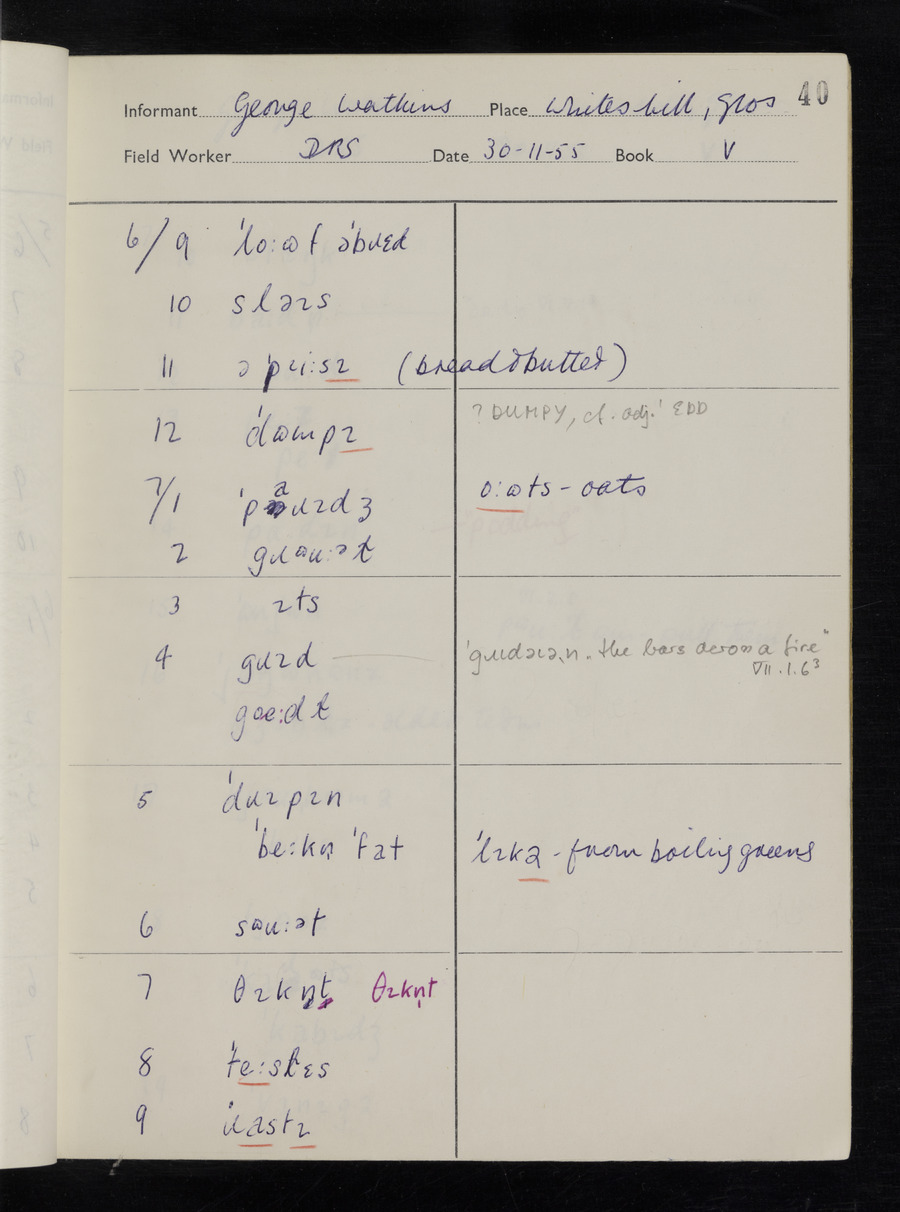 40
Informant George Watkins Place Whiteshill, Glos
Field Worker DRS Date 30-11-55 Book V
6/9 ˈlo:əf əˈbɹɛd
10 slɑɪs
11 ə ˈpɹi:sɪ (bread & butter)
12 ˈdɷmpɪ ? DUMPY, cf. adj.' EDD
7/1 ˈpaɹɪdʒ o:əts - oats
2 gɹɷu:ət
3 ɪts
4 gɹɪd 'gɹɪdəɪəɪn "the bars across a fire"
VII.1.6³
goe:dt
5 ˈdɹɪpɪn
ˈbe:kn̩ ˈfat ˈlɪkə - from boiling greens
6 sɷu:ət
7 θɪkn̩t θɪkn̩t
8 ˈte:stɛs
9 ˈɹastɪ